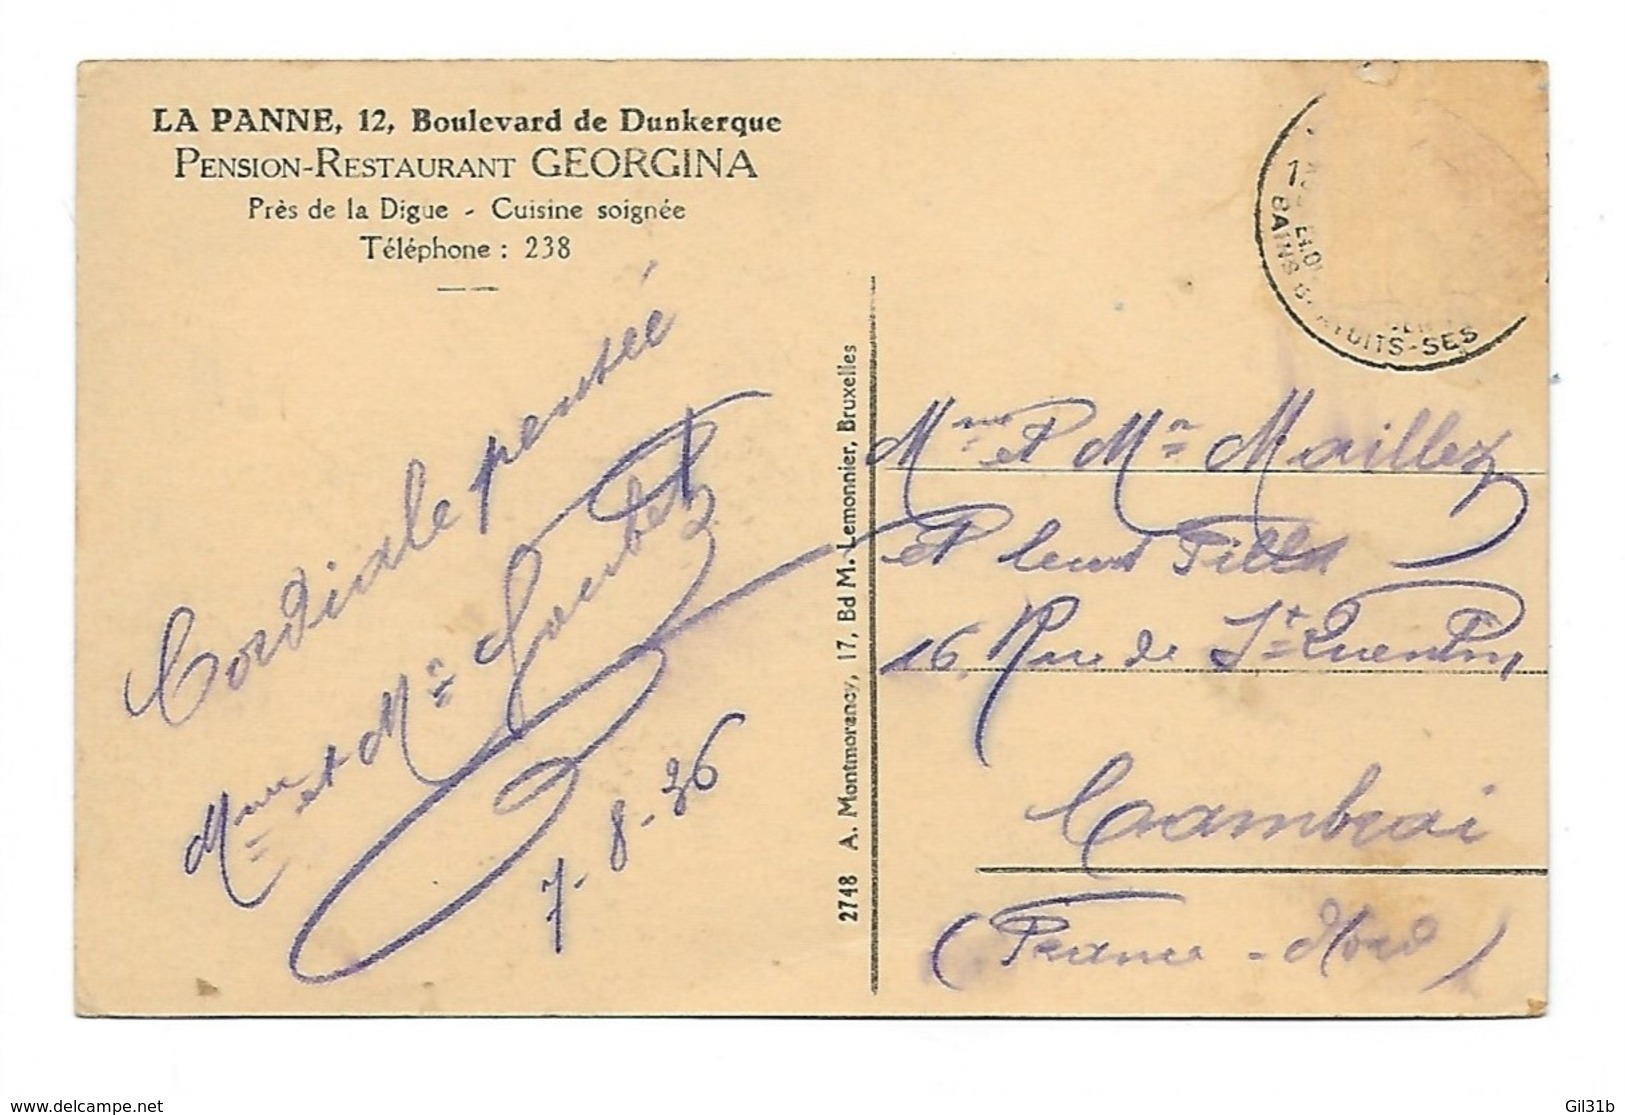 LA PANNE, 12, Boulevard de Dunkerque
PENSION-RESTAURANT GEORGINA
Près de la Digue - Cuisine soignée
Téléphone : 238
Cordiale pensée
Mme et Mr
7-8-36
2748 A. Montmorency, 17, Bd M. Lemonnier, Bruxelles
BAINS
UITS-SES
Mme et Mr Maillez
et leurs Filles
16, Rue de St Quentin,
Cambrai
(France - Nord)
www.delcampe.net
Gil31b